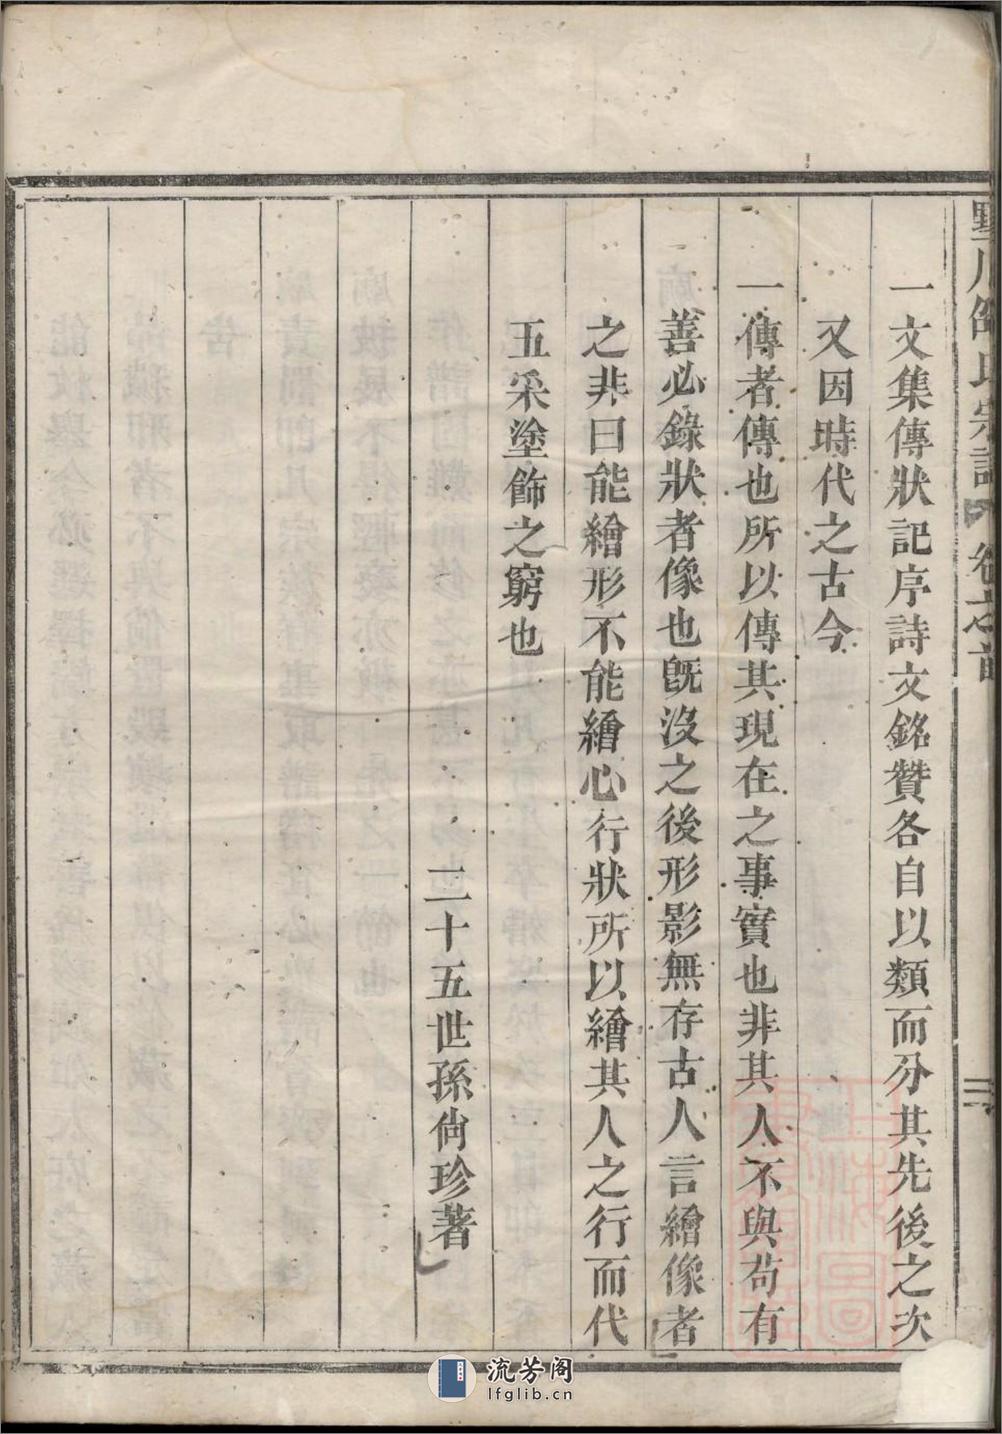 一文集傳狀記序詩文銘贊各自以類而分其先後之次
又因時代之古今
一傳者傳也所以傳其現在之事實也非其人不與茍有
善必錄狀者像也旣沒之後形影無存古人言繪像者
之非曰能繪形不能繪心行狀所以繪其人之行而代
五采塗飾之窮也
二十五世孫尙珍著
氏宗譜
卷之首
流芳阁
lfglib.cn